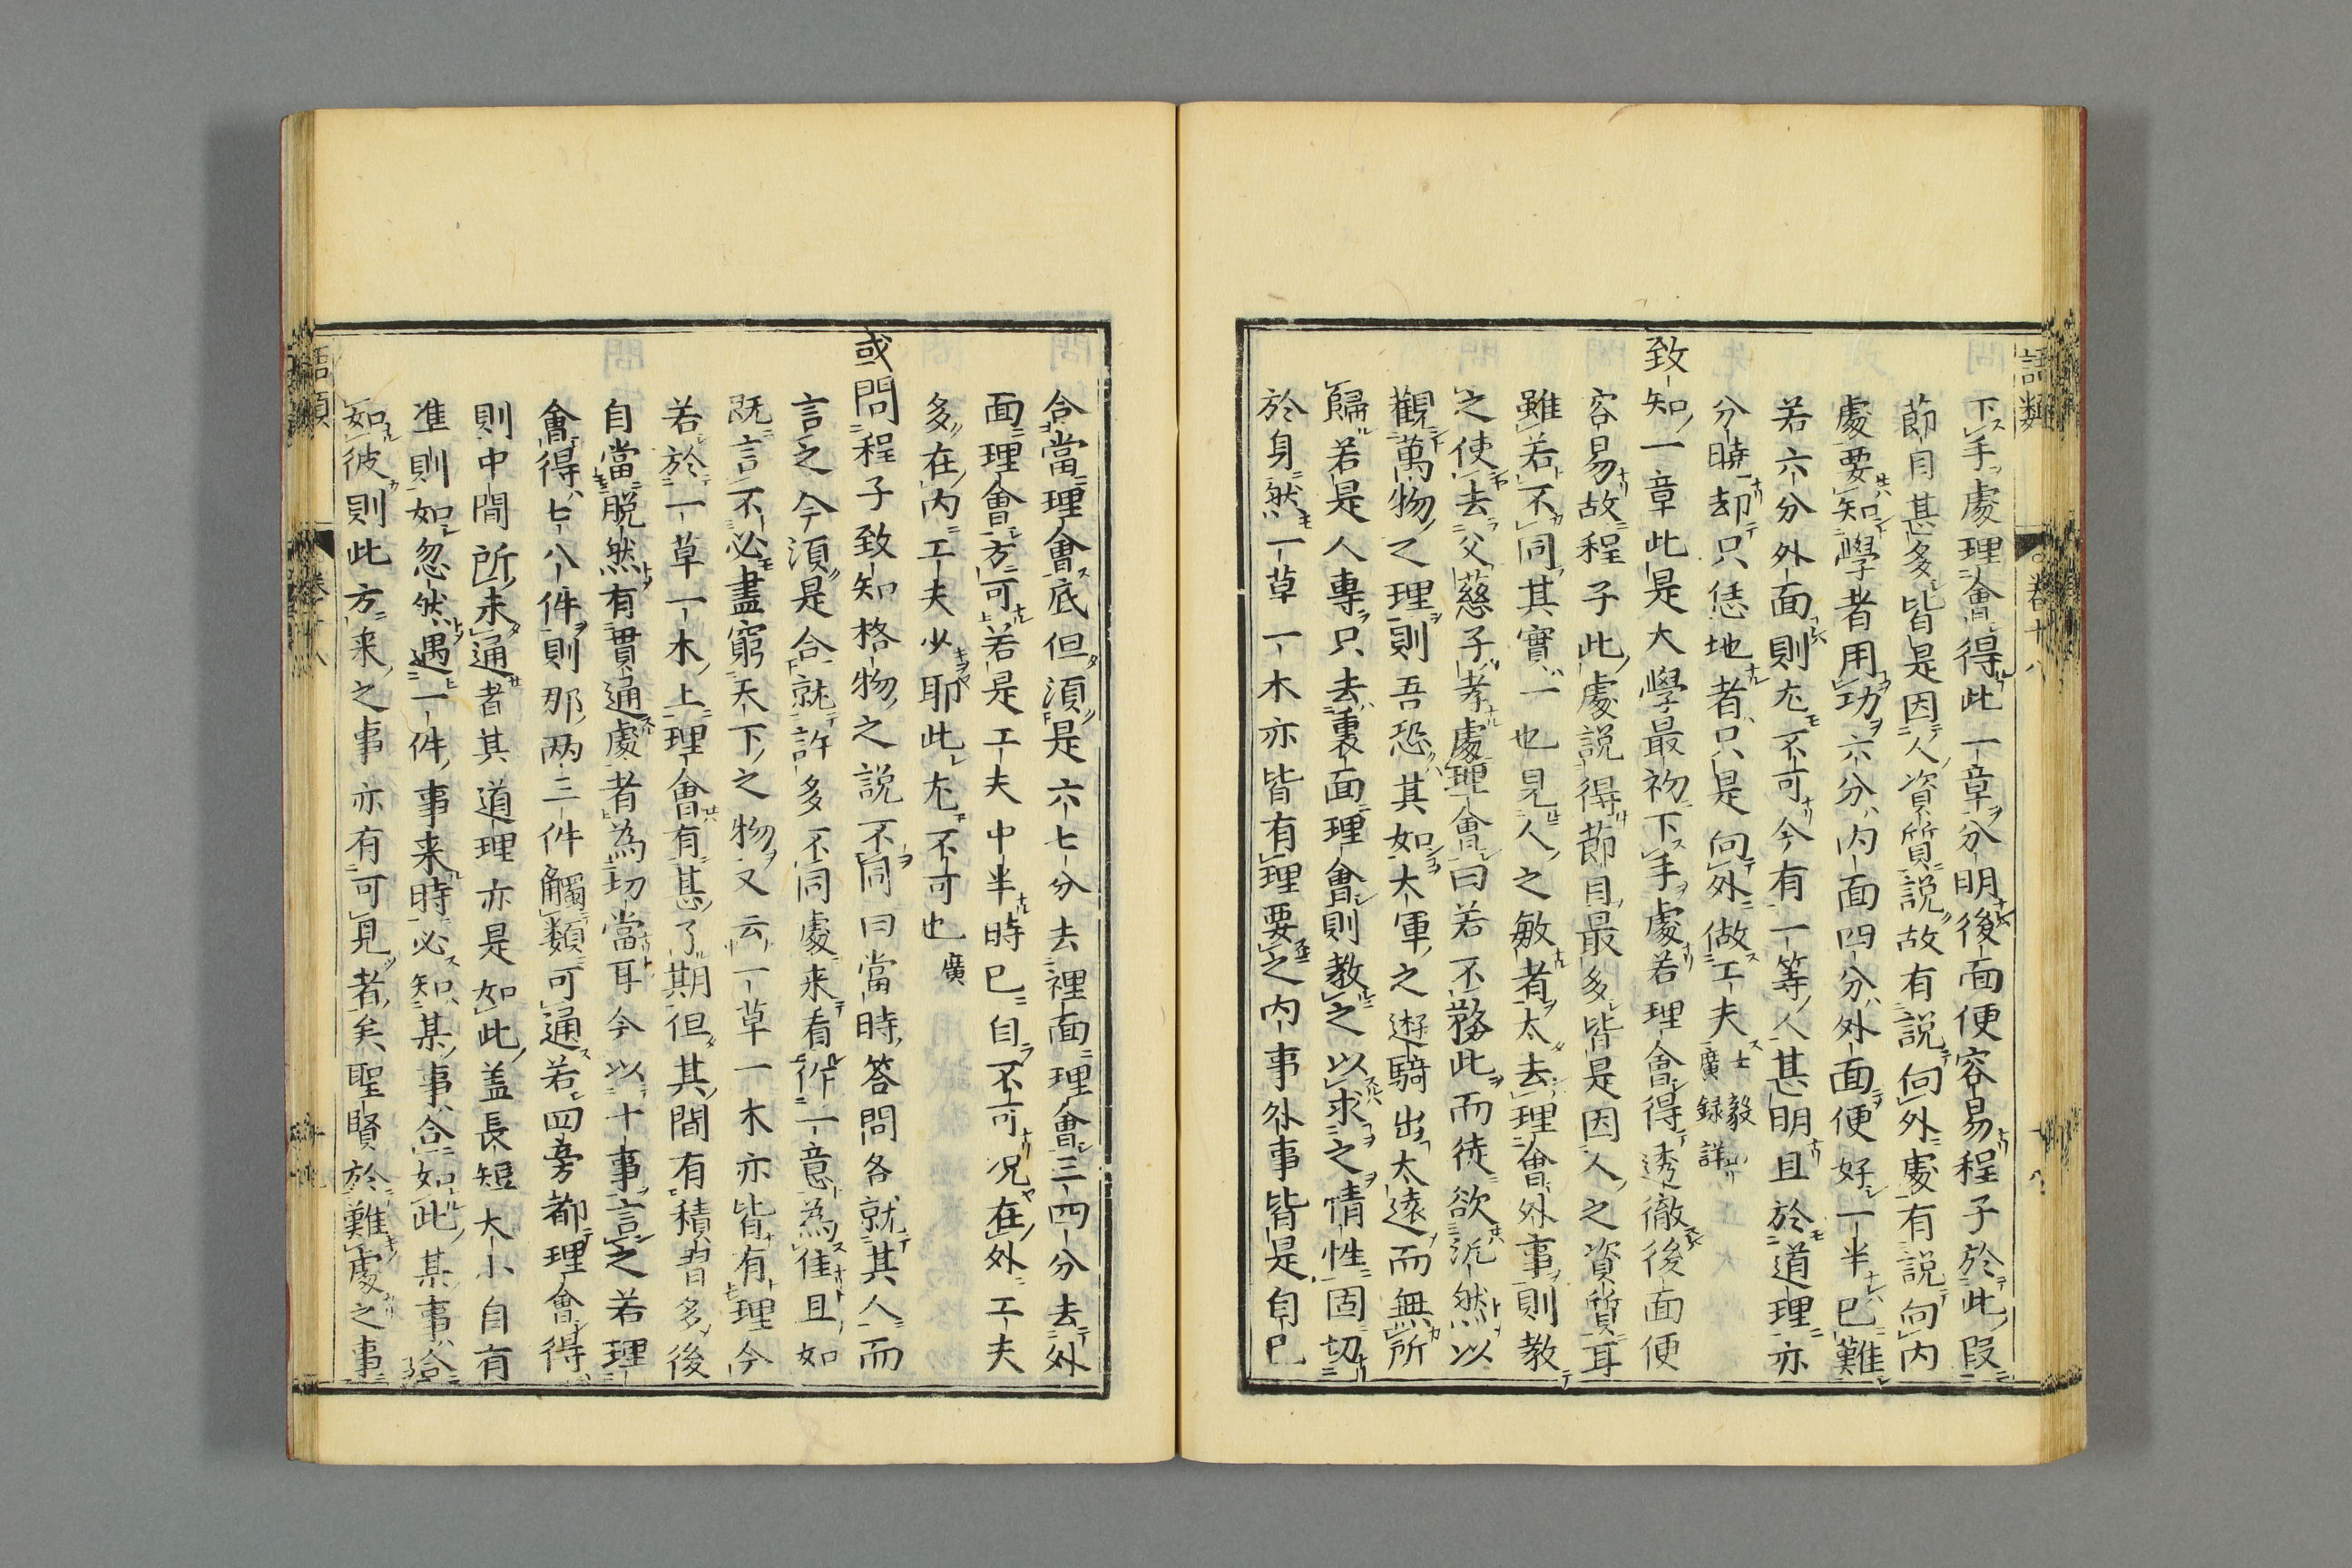 語類
卷十八
下手處理會得此一章分明後面便容易程子於此段
節目甚多皆是因人資質説故有説向外處有説向内
處要知學者用功六分内面四分外面便好一半已難
若六分外面則尤不可今有一等人甚明且於道理亦
分曉却只恁地者只是向外做工夫士毅廣録詳
致知一章此是大學最初下手處若理會得透徹後面便
容易故程子此處説得節目最多皆是因人之資質耳
雖若不同其實一也見人之敏者太去理會外事則教
之使去父慈子孝處理會曰若不務此而徒欲泛然以
觀萬物之理則吾恐其如大軍之遊騎出太遠而無所
歸若是人專只去裏面理會則教之以求之情性固切
於身然一草一木亦皆有理要之内事外事皆是自己
合當理會底但須是六七分去裡面理會三四分去外
面理會方可若是工夫中半時已自不可况在外工夫
多在内工夫少耶此尤不可也廣
或問程子致知格物之説不同曰當時答問各就其人而
言之今須是合就許多不同處来看作一意為佳且如
既言不必盡窮天下之物又云一草一木亦皆有理今
若於一草一木上理會有甚了期但其間有積習多後
自當脱然有貫通處者為切當耳今以十事言之若理
會得七八件則那两三件觸類可通若四旁都理會得
則中間所未通者其道理亦是如此盖長短大小自有
准則如忽然遇一件事来時必知某事合如此某事合
如彼則此方来之事亦有可見者矣聖賢於難處之事
語類